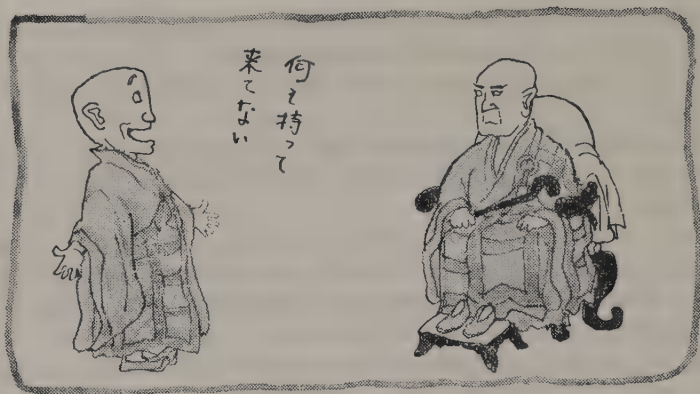 何も持って
来てない